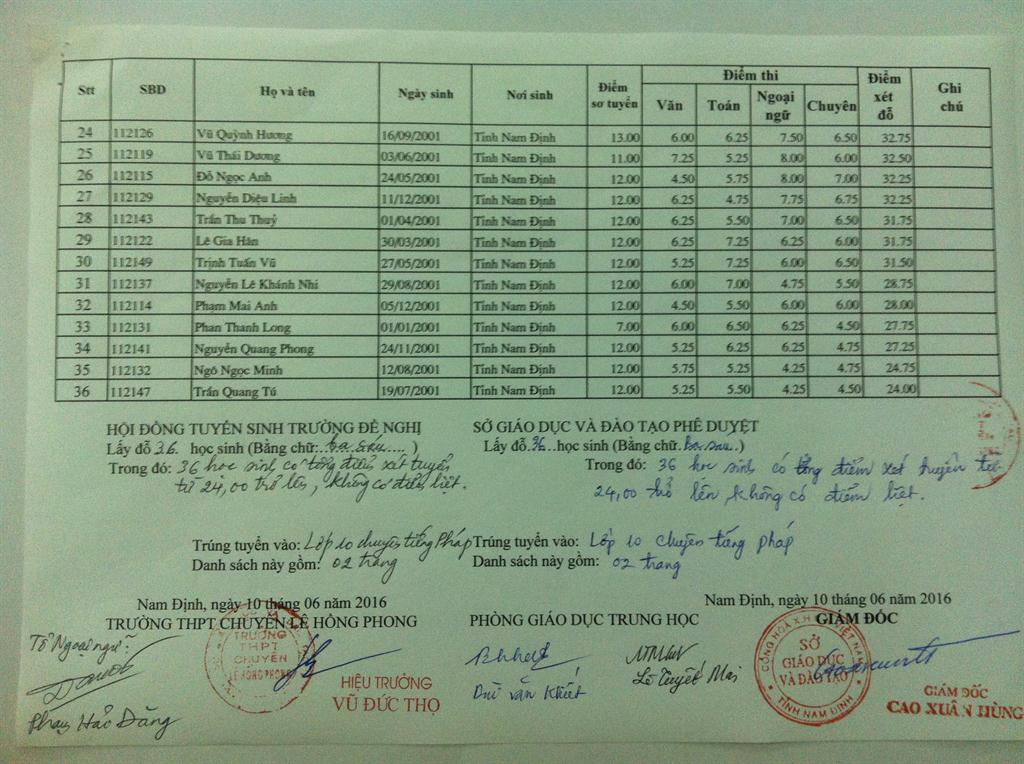 Stt SBD Họ và tên Ngày sinh Nơi sinh Điểm sơ tuyển Điểm thi Văn Toán Ngoại ngữ Chuyên Điểm xét đỗ Ghi chú
24 112126 Vũ Quỳnh Hương 16/09/2001 Tỉnh Nam Định 13.00 6.00 6.25 7.50 6.50 32.75
25 112119 Vũ Thái Dương 03/06/2001 Tỉnh Nam Định 11.00 7.25 5.25 8.00 6.00 32.50
26 112115 Đỗ Ngọc Anh 24/05/2001 Tỉnh Nam Định 12.00 4.50 5.75 8.00 7.00 32.25
27 112129 Nguyễn Diệu Linh 11/12/2001 Tỉnh Nam Định 12.00 6.25 4.75 7.75 6.75 32.25
28 112143 Trần Thu Thuỷ 01/04/2001 Tỉnh Nam Định 12.00 6.25 5.50 7.00 6.50 31.75
29 112122 Lê Gia Hân 30/03/2001 Tỉnh Nam Định 12.00 6.25 7.25 6.25 6.00 31.75
30 112149 Trịnh Tuấn Vũ 27/05/2001 Tỉnh Nam Định 12.00 5.25 7.25 6.00 6.50 31.50
31 112137 Nguyễn Lê Khánh Nhi 29/08/2001 Tỉnh Nam Định 12.00 6.00 7.00 4.75 5.50 28.75
32 112114 Phạm Mai Anh 05/12/2001 Tỉnh Nam Định 12.00 4.50 5.50 6.00 6.00 28.00
33 112131 Phan Thanh Long 01/01/2001 Tỉnh Nam Định 7.00 6.00 6.50 6.25 4.50 27.75
34 112141 Nguyễn Quang Phong 24/11/2001 Tỉnh Nam Định 12.00 5.25 6.25 6.25 4.75 27.25
35 112132 Ngô Ngọc Minh 12/08/2001 Tỉnh Nam Định 12.00 5.75 5.25 4.25 4.75 24.75
36 112147 Trần Quang Tú 19/07/2001 Tỉnh Nam Định 12.00 5.25 5.50 4.25 4.50 24.00
HỘI ĐỒNG TUYỂN SINH TRƯỜNG ĐỀ NGHỊ
Lấy đỗ 36 học sinh (Bằng chữ: ba sáu)
Trong đó: 36 học sinh có tổng điểm xét tuyển
từ 24,00 trở lên, không có điểm liệt.
Trúng tuyển vào: Lớp 10 chuyên tiếng Pháp
Danh sách này gồm: 02 trang
SỞ GIÁO DỤC VÀ ĐÀO TẠO PHÊ DUYỆT
Lấy đỗ 36 học sinh (Bằng chữ ba sáu)
Trong đó: 36 học sinh có tổng điểm xét tuyển từ
24,00 trở lên, không có điểm liệt.
Trúng tuyển vào: Lớp 10 chuyên tiếng pháp
Danh sách này gồm: 02 trang
Nam Định, ngày 10 tháng 06 năm 2016
TRƯỜNG THPT CHUYÊN LÊ HỒNG PHONG
Tổ Ngoại ngữ:
Phạm Hảo Đăng
TRƯỜNG
THPT
CHUYÊN
LÊ HỒNG PHONG
HIỆU TRƯỞNG
VŨ ĐỨC THỌ
PHÒNG GIÁO DỤC TRUNG HỌC
Lê Tuyết Mai
Nam Định, ngày 10 tháng 06 năm 2016
GIÁM ĐỐC
SỞ
GIÁO DỤC
VÀ ĐÀO TẠO
TỈNH NAM ĐỊNH
GIÁM ĐỐC
CAO XUÂN HÙNG